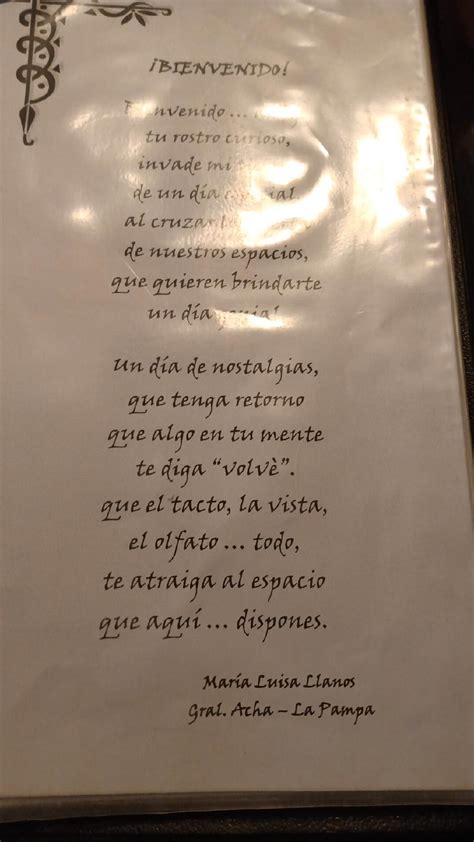 ¡BIENVENIDO!
tu rostro curioso,
invade mi
de un día
al cruzar
de nuestros espacios,
que quieren brindarte
un día genial
Un día de nostalgias,
que tenga retorno
que algo en tu mente
te diga “volvè”.
que el tacto, la vista,
el olfato ... todo,
te atraiga al espacio
que aquí ... dispones.
María Luisa Llanos
Gral. Acha – La Pampa